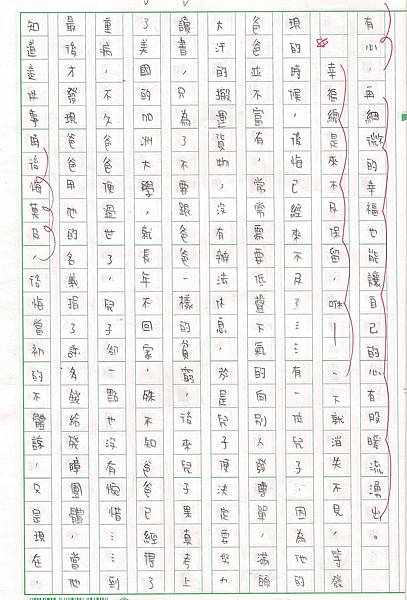 有心，再細微的幸福也能讓自己的心有股暖流湧出。
幸福總是來不及保留，咻—一下就消失不見，等發
現的時候，後悔已經來不及了……有一位兒子，因為他的
爸爸並不富有，常常需要低聲下氣的向別人發傳單，滿頭
大汗的搬運貨物，沒有辦法休息，於是兒子便決定要努力
讀書，只為了不要跟爸爸一樣的貧窮，後來兒子果真考上
了美國的加洲大學，就長年不回家，殊不知爸爸已經得了
重病，不久便過世了，兒子卻一點也沒有惋惜……到
最後才發現爸爸用他的名義捐了許多錢給發障團體，當他
知道這件事時後悔莫及，後悔當初的不體諒，只是現在